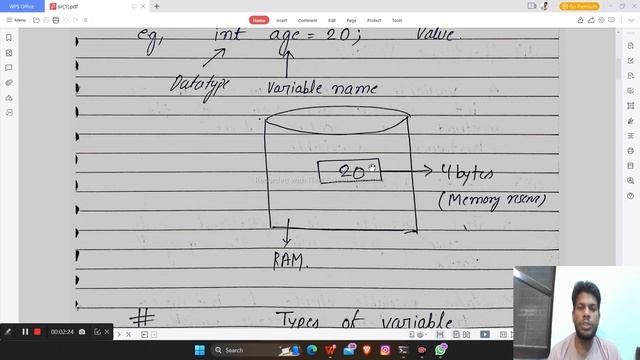 WPS Office
sir(1).pdf
Go Premium
Menu
Home
Insert
Comment
Edit
Page
Protect
Tools
eg, int age = 20; value.
Datatype variable name
20 4 bytes
(Memory reserve)
RAM.
# Types of variable
00:02:24
Search